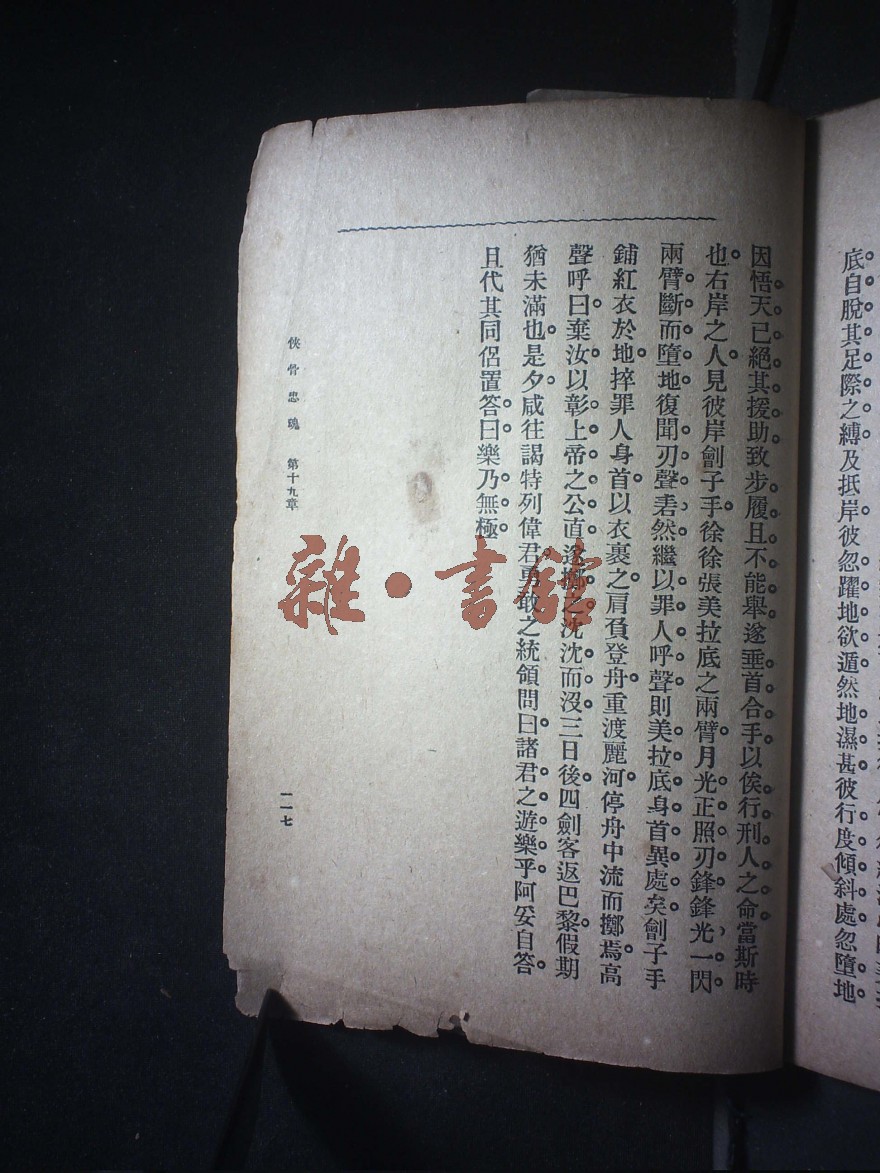 底自脫其足際之縛及抵岸彼忽躍地欲遁然地濕甚彼行度傾斜處忽墮地
因悟天已絕其援助致步履且不能舉遂垂首合手以俟行刑人之命當斯時
也右岸之人見彼岸劊子手徐徐張美拉底之兩臂月光正照刃鋒鋒光一閃
兩臂斷而墮地復聞刃聲砉然繼以罪人呼聲則美拉底身首異處矣劊子手
鋪紅衣於地捽罪人身首以衣裹之肩負登舟重渡麗河停舟中流而擲焉高
聲呼曰棄汝以彰上帝之公直遂擲之沈沈而沒三日後四劍客返巴黎假期
猶未滿也是夕咸往謁特列偉君勇敢之統領問曰諸君之遊樂乎阿妥自答
且代其同侶置答曰樂乃無極
俠骨忠魂 第十九章
一一七
雜·書館